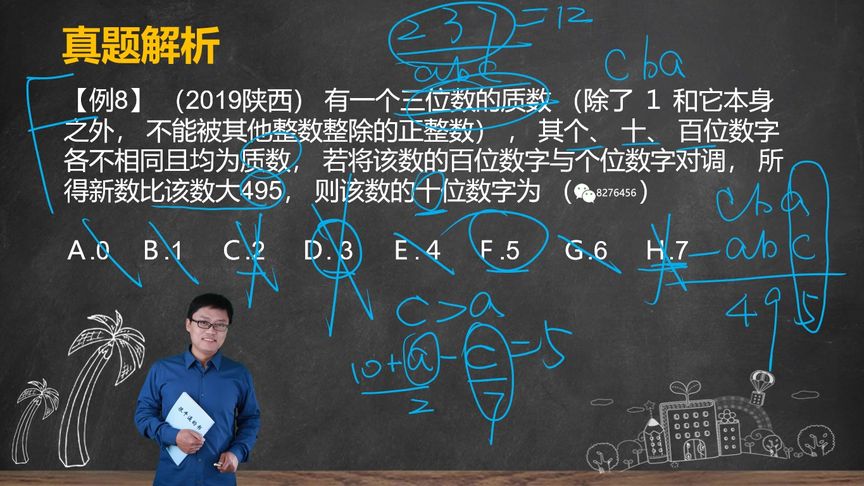 真题解析
237=12
abc
cba
【例8】 (2019陕西) 有一个三位数的质数 (除了 1 和它本身
之外, 不能被其他整数整除的正整数) , 其个、 十、 百位数字
各不相同且均为质数, 若将该数的百位数字与个位数字对调, 所
得新数比该数大495, 则该数的十位数字为 ( 8276456 )
A.0 B.1 C.2 D.3 E.4 F.5 G.6 H.7
cba
-abc
495
c>a
10+a-c=5
2 7